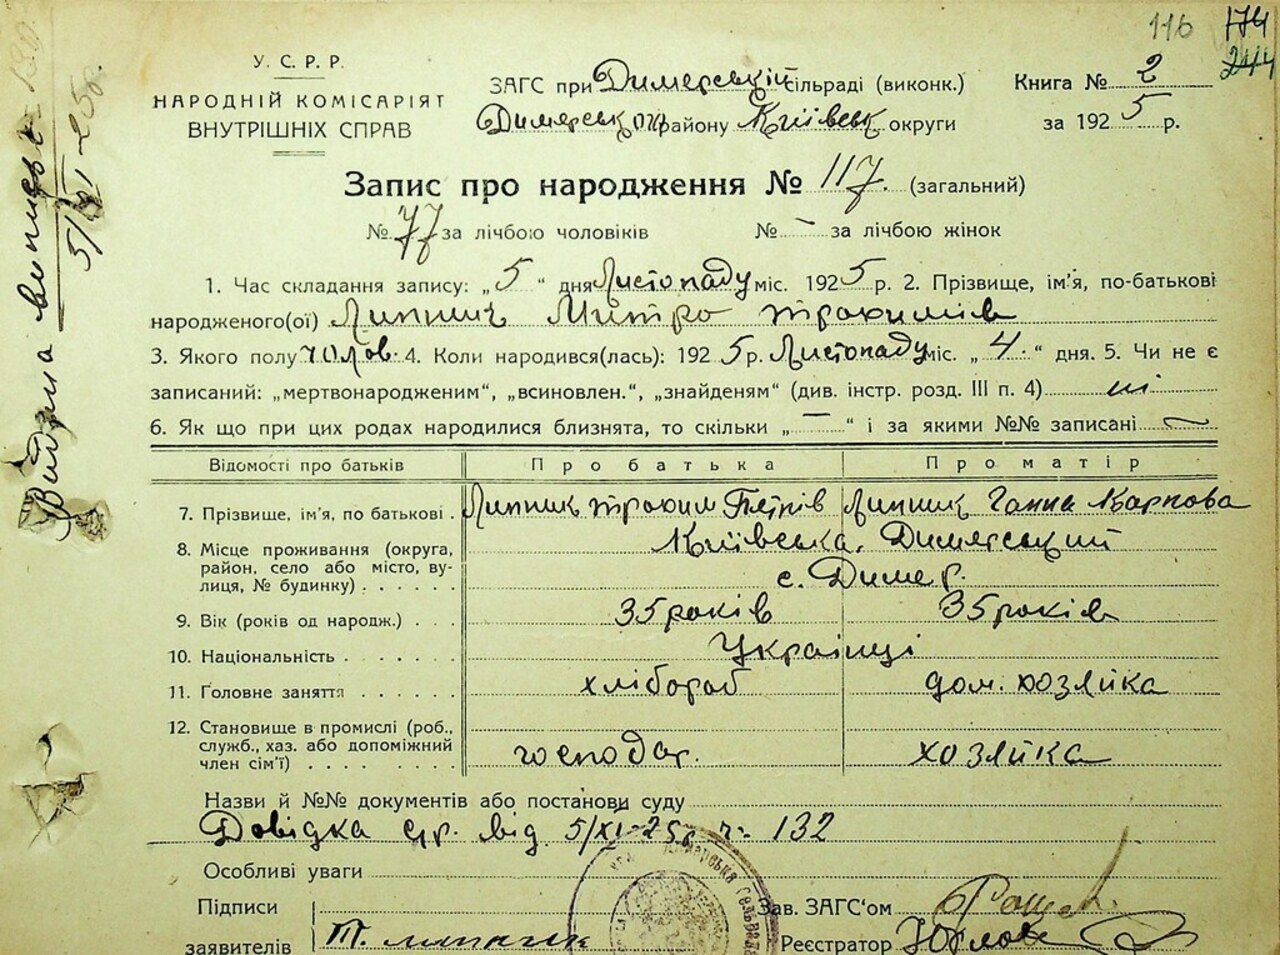 116 174
244
У. С. Р. Р.
НАРОДНІЙ КОМІСАРІЯТ
ВНУТРІШНІХ СПРАВ
ЗАГС при Димерський сільраді (виконк.) Книга № 2
Димерського району Київськ округи за 1925 р.
Запис про народження № 117. (загальний)
№ 77 за лічбою чоловіків № – за лічбою жінок
1. Час складання запису: „5“ дня Листопаду міс. 1925 р. 2. Прізвище, ім'я, по-батькові
народженого(ої) Липник Митро Трохимів
3. Якого полу чолов. 4. Коли народився(лась): 1925 р. Листопаду міс. „4.“ дня. 5. Чи не є
записаний: „мертвонародженим“, „всиновлен.“, „знайденям“ (див. інстр. розд. III п. 4) ні
6. Як що при цих родах народилися близнята, то скільки „–“ і за якими №№ записані –
Відомості про батьків Про батька Про матір
7. Прізвище, ім'я, по батькові . Липник Трохим Петрів Липник Ганна Карпова
8. Місце проживання (округа, Київська, Димерський
район, село або місто, ву-
лиця, № будинку) . . . . . . с. Димер.
9. Вік (років од народж.) . . . 35 років 35 років
10. Національність . . . . . . . Українці
11. Головне заняття . . . . . . хлібороб дом. хозяйка
12. Становище в промислі (роб.,
служб., хаз. або допоміжний
член сім'ї) . . . . . . . . . господар. хозяйка
Назви й №№ документів або постанови суду
Довідка с/р. від 5/XI-25р. ч. 132
Особливі уваги
Підписи
заявителів Т. Липник
Зав. ЗАГС'ом
Реєстратор
Видана випись
5/XI-25р.